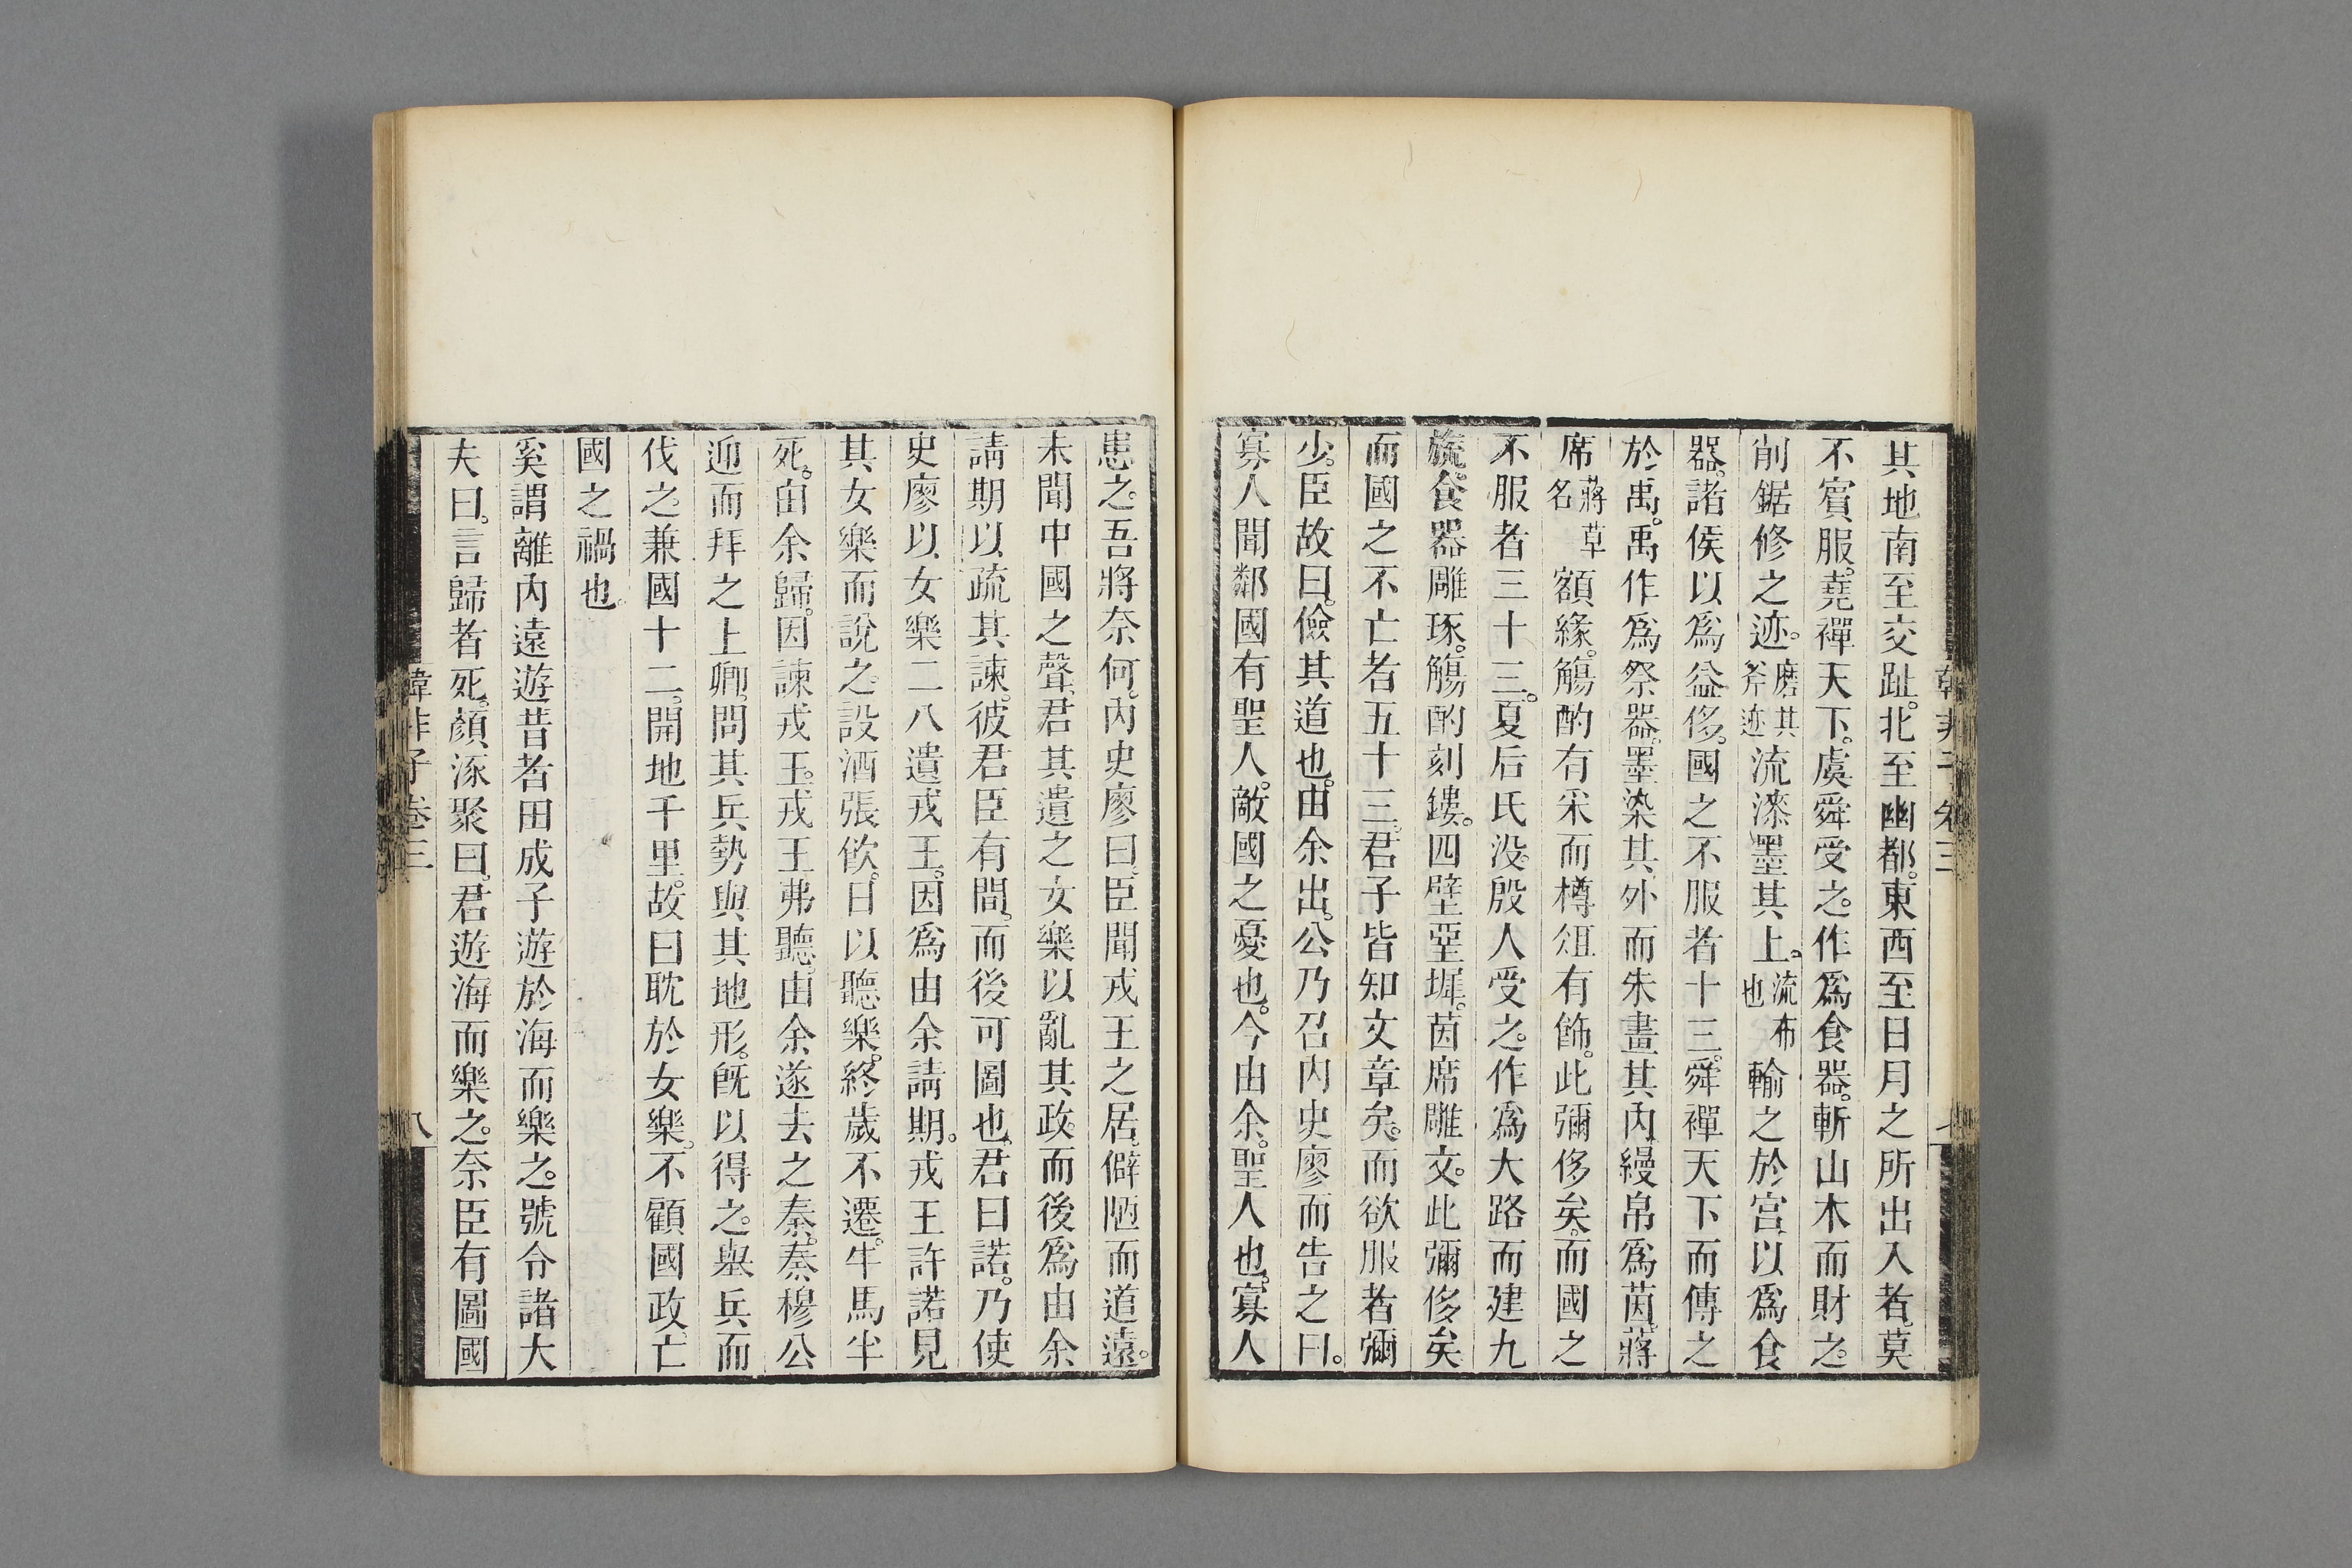 其地南至交趾。北至幽都。東西至日月之所出入者。莫
不賓服。堯禪天下。虞舜受之。作爲食器。斬山木而財之。
削鋸修之迹。磨其斧迹流漆墨其上。流布也輸之於宫以爲食
器。諸侯以爲益侈。國之不服者十三。舜禪天下而傳之
於禹。禹作爲祭器。墨染其外而朱畫其內縵帛爲茵。蔣
席蔣草名額緣。觴酌有采而樽俎有飾。此彌侈矣。而國之
不服者三十三。夏后氏没。殷人受之。作爲大路而建九
旒。食器雕琢。觴酌刻鏤。四壁堊墀。茵席雕文。此彌侈矣
而國之不亡者五十三。君子皆知文章矣。而欲服者彌
少。臣故曰。儉其道也。由余出。公乃召內史廖而告之曰。
寡人聞鄰國有聖人。敵國之憂也。今由余。聖人也。寡人
患之。吾將奈何。內史廖曰。臣聞戎王之居。僻陋而道遠。
未聞中國之聲。君其遺之女樂以亂其政。而後爲由余
請期以疏其諫。彼君臣有間。而後可圖也。君曰諾。乃使
史廖以女樂二八遺戎王。因爲由余請期。戎王許諾見
其女樂而說之。設酒張飲。日以聽樂。終歲不遷。牛馬半
死。由余歸。因諫戎王。戎王弗聽。由余遂去之秦。秦穆公
迎而拜之上卿。問其兵勢與其地形。旣以得之。舉兵而
伐之。兼國十二。開地千里。故曰耽於女樂。不顧國政。亡
國之禍也。
奚謂離內遠遊昔者田成子遊於海而樂之。號令諸大
夫曰。言歸者死。顏涿聚曰。君遊海而樂之。奈臣有圖國
韓非子卷三
八